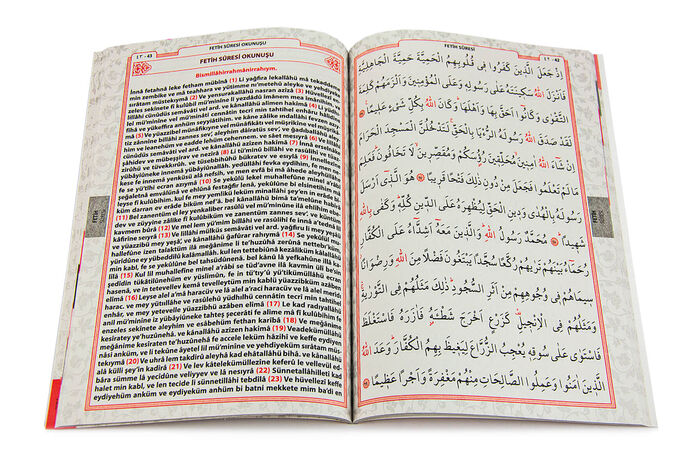 FETİH SÛRESİ
٤٢ - 42
اِذْ جَعَلَ الَّذ۪ينَ كَفَرُوا ف۪ي قُلُوبِهِمُ الْحَمِيَّةَ حَمِيَّةَ الْجَاهِلِيَّةِ
فَاَنْزَلَ اللّٰهُ سَك۪ينَتَهُ عَلٰى رَسُولِه۪ وَعَلَى الْمُؤْمِن۪ينَ وَاَلْزَمَهُمْ كَلِمَةَ
التَّقْوٰى وَكَانُٓوا اَحَقَّ بِهَا وَاَهْلَهَا وَكَانَ اللّٰهُ بِكُلِّ شَيْءٍ عَل۪يمًا
لَقَدْ صَدَقَ اللّٰهُ رَسُولَهُ الرُّءْيَا بِالْحَقِّ لَتَدْخُلُنَّ الْمَسْجِدَ الْحَرَامَ
اِنْ شَٓاءَ اللّٰهُ اٰمِن۪ينَ مُحَلِّق۪ينَ رُؤُ۫سَكُمْ وَمُقَصِّر۪ينَ لَا تَخَافُونَ فَعَلِمَ
مَا لَمْ تَعْلَمُوا فَجَعَلَ مِنْ دُونِ ذٰلِكَ فَتْحًا قَر۪يبًا هُوَ الَّذ۪ٓي اَرْسَلَ
رَسُولَهُ بِالْهُدٰى وَد۪ينِ الْحَقِّ لِيُظْهِرَهُ عَلَى الدّ۪ينِ كُلِّه۪ وَكَفٰى بِاللّٰهِ
شَه۪يدًا مُحَمَّدٌ رَسُولُ اللّٰهِ وَالَّذ۪ينَ مَعَهُٓ اَشِدَّٓاءُ عَلَى الْكُفَّارِ
رُحَمَٓاءُ بَيْنَهُمْ تَرٰيهُمْ رُكَّعًا سُجَّدًا يَبْتَغُونَ فَضْلًا مِنَ اللّٰهِ وَرِضْوَانًا
س۪يمَاهُمْ ف۪ي وُجُوهِهِمْ مِنْ اَثَرِ السُّجُودِ ذٰلِكَ مَثَلُهُمْ فِي التَّوْرٰيةِ
وَمَثَلُهُمْ فِي الْاِنْج۪يلِ كَزَرْعٍ اَخْرَجَ شَطْـَٔهُ فَاٰزَرَهُ فَاسْتَغْلَظَ
فَاسْتَوٰى عَلٰى سُوقِه۪ يُعْجِبُ الزُّرَّاعَ لِيَغ۪يظَ بِهِمُ الْكُفَّارَ وَعَدَ اللّٰهُ
الَّذ۪ينَ اٰمَنُوا وَعَمِلُوا الصَّالِحَاتِ مِنْهُمْ مَغْفِرَةً وَاَجْرًا عَظ۪يمًا
FETİH
٤٣ - 43
FETİH SÛRESİ OKUNUŞU
FETİH SÛRESİ OKUNUŞU
Bismillâhirrahmânirrahıym.
İnnâ fetahnâ leke fethan mübînâ (1) Li yağfira lekallâhü mâ tekaddeme
min zembike ve mâ teahhara ve yütimme ni'metehû aleyke ve yehdiyeke
sırâtam müstekıymâ (2) Ve yensurakallâhü nasran azîzâ (3) Hüvellezî
enzeles sekînete fî kulûbil mü'minîne li yezdâdû îmânem mea îmânihim, ve
lillâhi cünûdüs semâvâti vel ard. ve kânallâhü alîmen hakîmâ (4) Li
yüdhılel mü'minîne vel mü'minâti cennâtin tecrî min tahtihel enhâru hâlidîne
fîhâ ve yükeffira anhüm seyyiâtihim. ve kâne zâlike ındallâhi fevzen azıymâ
(5) Ve yüazzibel münâfikıyne vel münâfikâti vel müşrikîne vel müşrikâtiz
zânnîne billâhi zannes sev', aleyhim dâiratüs sev', ve ğadıballâhü aleyhim
ve leanehüm ve eadde lehüm cehennem. ve sâet mesıyrâ (6) Ve lillâhi
cünûdüs semâvâti vel ard. ve kânallâhü azîzen hakîmâ (7) İnnâ erselnâke
şâhidev ve mübeşşirav ve nezîrâ (8) Li tü'minû billâhi ve rasûlihî ve tüaz-
zirûhü ve tüvekkırûh. ve tüsebbihûhü bükratev ve esıylâ (9) İnnellezîne
yübâyiûneke innemâ yübâyiûnallâh. yedüllâhi fevka eydîhim, fe men ne-
kese fe innemâ yenküsü alâ nefsih, ve men evfâ bi mâ âhede aleyhüllâhe
fe se yü'tîhi ecran azıymâ (10) Se yekûlü lekel muhallefûne minel a'râbi
şeğaletnâ emvâlünâ ve ehlûnâ festağfir lenâ, yekûlûne bi elsinetihim mâ
leyse fî kulûbihim. kul fe mey yemlikü leküm minallâhi şey'en in erâde bi-
küm darran ev erâde biküm nef'â. bel kânallâhü bimâ ta'melûne habîrâ
(11) Bel zanentüm el ley yenkaliber rasûlü vel mü'minûne ilâ ehlîhim ebe-
dev ve züyyine zâlike fî kulûbiküm ve zanentüm zannes sev', ve küntüm
kavmem bûrâ (12) Ve mel lem yü'mim billâhi ve rasûlihî fe innâ a'tednâ lil
kâfirîne seıyrâ (13) Ve lillâhi mülküs semâvâti vel ard. yağfiru li mey yeşâü
ve yüazzibü mey yeşâ', ve kânallâhü ğafûrar rahıymâ (14) Se yekûlül mu-
hallefûne izen talaktüm ilâ meğânime li te'huzûhâ zerûnâ nettebı'küm,
yürîdûne ey yübeddilû kelâmallâh. kul len tettebiûnâ kezâliküm kâlallâhü
min kabl, fe se yekûlûne bel tahsüdûnenâ. bel kânû lâ yefkahûne illâ kalîlâ
(15) Kul lil muhallefîne minel a'râbi se tüd'avne ilâ kavmin ülî be'sin
şedîdin tükâtilûnehüm ev yüslimûn, fe in tü'tıy'û yü'tikümüllâhü ecran
hasenâ, ve in tetevellev kemâ tevelleytüm min kablü yüazzibküm azâben
elîmâ (16) Leyse alel a'mâ haracüv ve lâ alel a'raci haracüv ve lâ alel merıydı
harac, ve mey yütıılâhe ve rasûlehû yüdhılhü cennâtin tecrî min tahtihel
enhâr, ve mey yetevelle yüazzibhü azâben elîmâ (17) Le kad radıyallâhü
anil mü'minîne iz yübâyiûneke tahteş şecerati fe alime mâ fî kulûbihim fe
enzeles sekînete aleyhim ve esâbehüm fethan karîbâ (18) Ve meğânime
kesîratey ye'huzûnehâ, ve kânallâhü azîzen hakîmâ (19) Veadekümüllâhü
meğânime kesîraten te'huzûnehâ fe accele leküm hâzihî ve keffe eydiyen
nâsi anküm, ve li tekûne âyetel lil mü'minîne ve yehdiyeküm sırâtam müs-
tekıymâ (20) Ve uhrâ lem takdirû aleyhâ kad ehâtallâhü bihâ. ve kânallâhü
alâ külli şey'in kadîrâ (21) Ve lev kâtelekümüllezîne keferû le vellevül ed-
bâra sümme lâ yecidûne veliyyev ve lâ nesıyrâ (22) Sünnetallâhilletî kad
halet min kabl, ve len tecide li sünnetillâhi tebdîlâ (23) Ve hüvellezî keffe
eydiyehüm anküm ve eydiyeküm anhüm bi batni mekkete mim ba'di en